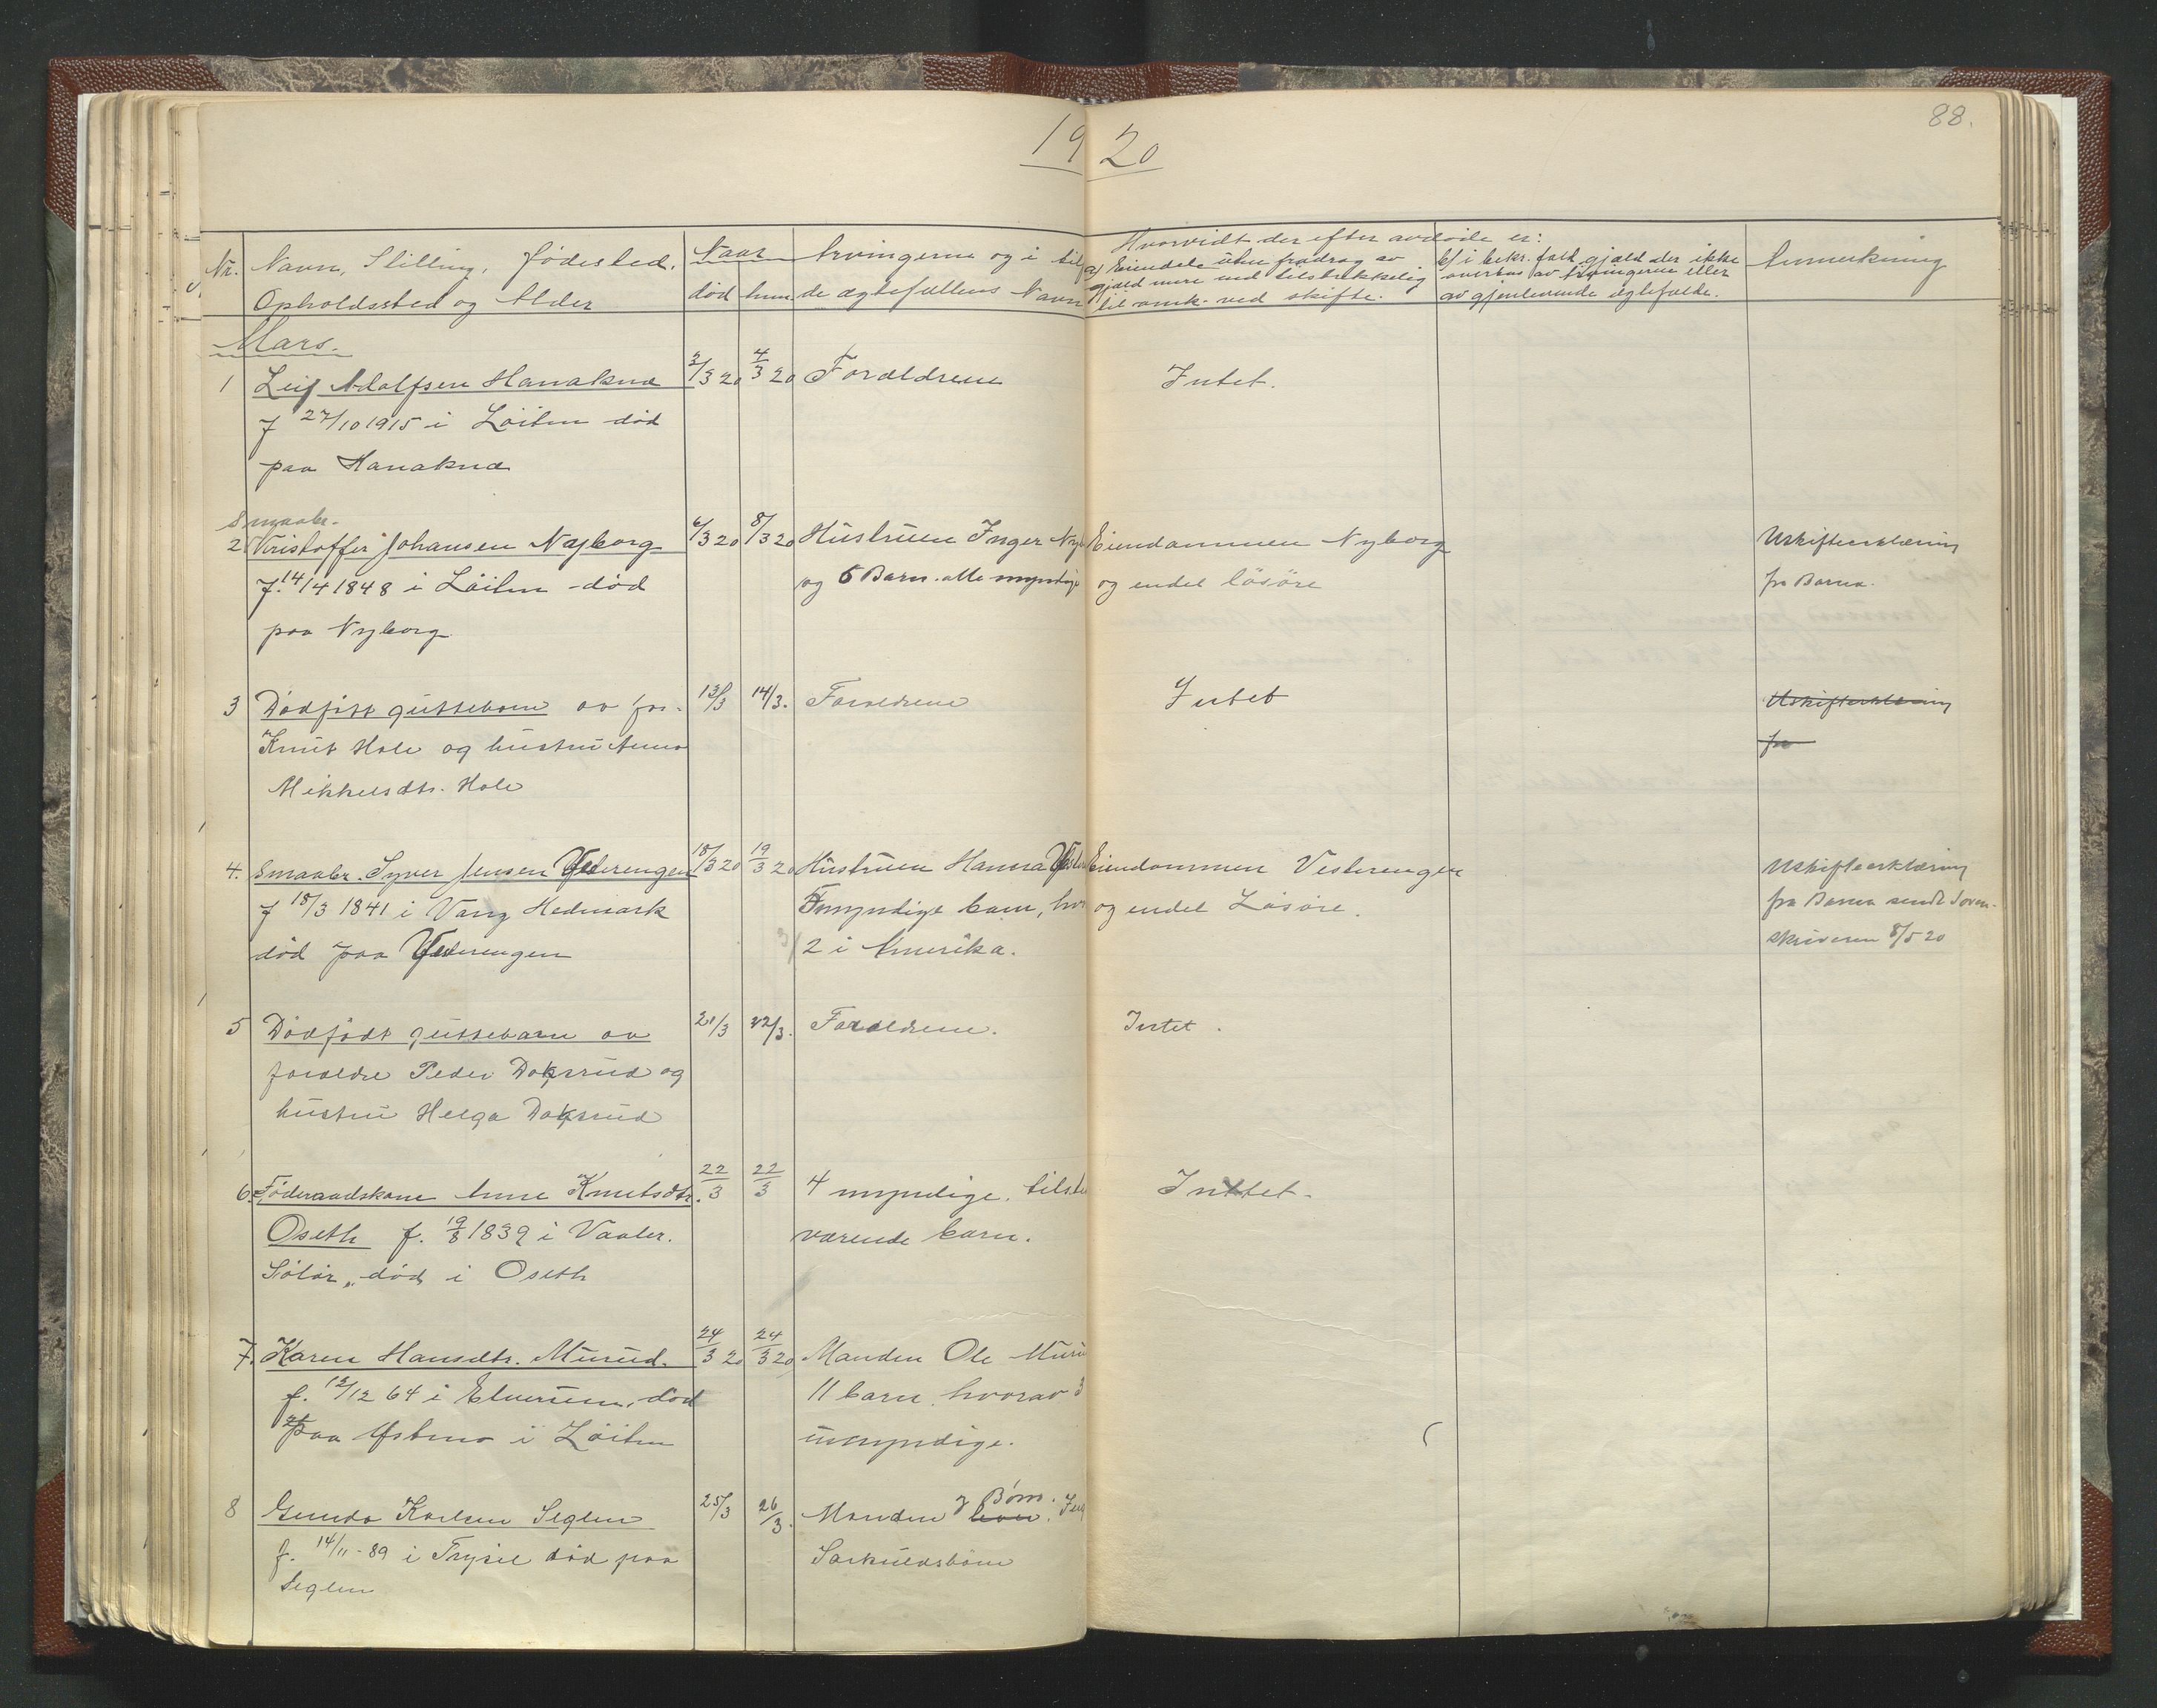 1920
88.
Nr. Navn, Stilling, Fødested, Opholdssted og Alder
Naar
død
Arvingerne og i til
de ægtefællens Navn
Hvorvidt der efter avdøde er:
a) Eiendele uten fradrag av
gjæld mere end tilstrekkelig
til omk. ved skifte.
b) i bekr. fald gjæld der ikke
overtas av arvingerne eller
av gjenlevende egtefælde.
Anmerkning
Mars.
1 Leif Adolfsen Hanaknæ 3/3 20 4/3 20 Forældrene Intet.
f 27/10 1915 i Löiten död
paa Hanaknæ
Smaabr.
2 Kristoffer Johansen Nyborg 6/3 20 8/3 20 Hustruen Inger Ny Eiendommen Nyborg Uskifteerklæring
f. 14/4 1848 i Löiten död og 5 Barn. alle myndige og endel lösöre fra Barna.
paa Nyborg
3 Dødfødt guttebarn av for. 13/3 14/3. Forældrene Intet Uskifteerklæring
Knut Hole og hustru Anna fra
Mikkelsdtr. Hole
4. Smaabr. Syver Jensen Vesterengen 18/3 20 19/3 20 Hustruen Hanna Vester Eiendommen Vesterengen Uskifteerklæring
f 18/3 1841 i Vang Hedmark myndige barn, hvor og endel Lösöre. fra Barna sendt Soren-
död paa Vesterengen 2 i Amerika. skriveren 8/5 20
5 Dødfødt guttebarn av 21/3 22/3. Forældrene. Intet.
forældre Peder Doksrud og
hustru Helga Doksrud
6. Föderaadskone Anne Knutsdtr. 22/3 22/3 4 myndige, tilste Intet.
Oseth f. 19/8 1839 i Vaaler. værende barn.
Solör, död i Oseth
7. Karen Hansdtr. Murud. 24/3 20 24/3 20 Manden Ole Muru
f. 12/12 64 i Elverum, död 11 barn, hvorav 3
paa Østmo i Löiten umyndige.
8 Gunda Karlsen Seglen 25/3 26/3. Manden og Børn. barn.
f. 14/11-89 i Trysil död paa Særkuldsbörn
Seglen